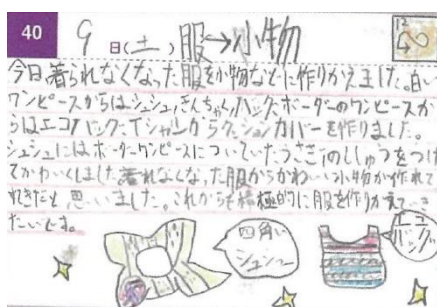 40
9日(土) 服→小物
今日、着られなくなった服を小物などに作りかえました。白い
ワンピースからはシュシュ、きんちゃく、バック、ボーダーのワンピースか
らはエコバック、Tシャツからクッションカバーを作りました。
シュシュにはボーダーワンピースについていたうさぎのししゅうをつけ
てかわいくしました。着れなくなった服からかわいい小物が作れて
すてきだと思いました。これからも積極的に服を作りかえていき
たいです。
四角い
シュシュ
エコ
バック